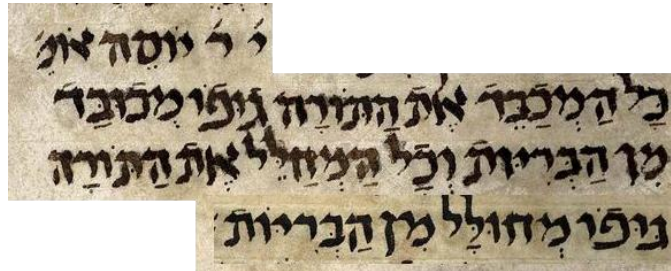 י׳ ר׳ יוֹסֵה אוֹמ׳
כָּל הַמְכַבֵּד אֶת הַתּוֹרָה גּוּפוֹ מְכוּבָּד
מִן הַבִּרְיוֹת וְכָל הַמְחַלֵּל אֶת הַתּוֹרָה
גּוּפוֹ מְחוּלָּל מִן הַבִּרְיוֹת